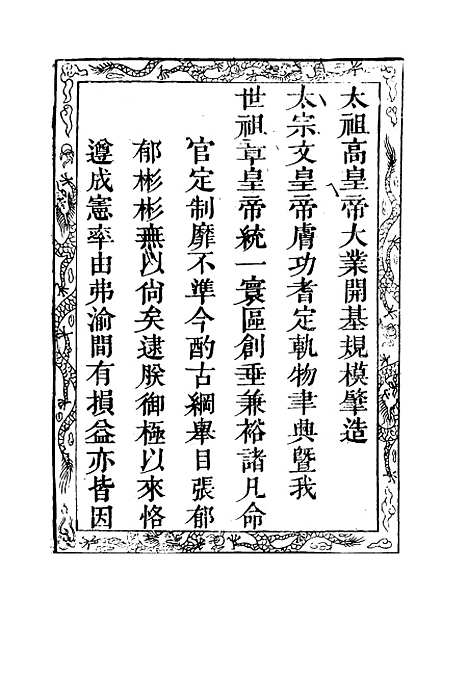 太祖高皇帝大業開基規模肇造
太宗文皇帝膚功耆定軌物聿典曁我
世祖章皇帝統一寰區創垂兼裕諸凡命
官定制靡不準今酌古綱舉目張郁
郁彬彬無以尚矣逮朕御極以來恪
遵成憲率由弗渝間有損益亦皆因